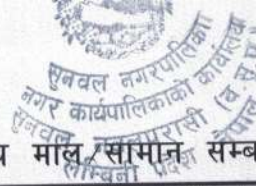 सुनवल नगरपालिका
नगर कार्यपालिकाको कार्यालय
सुनवल नवलपरासी (ब.सु.प.)
लुम्बिनी प्रदेश नेपाल
माल/सामान सम्ब